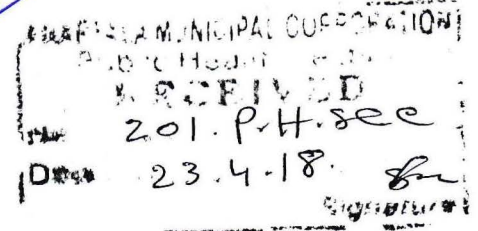 AGARTALA MUNICIPAL CORPORATION
Public Health
RECEIVED
201. P.H. sec
Date 23.4.18.
Signature